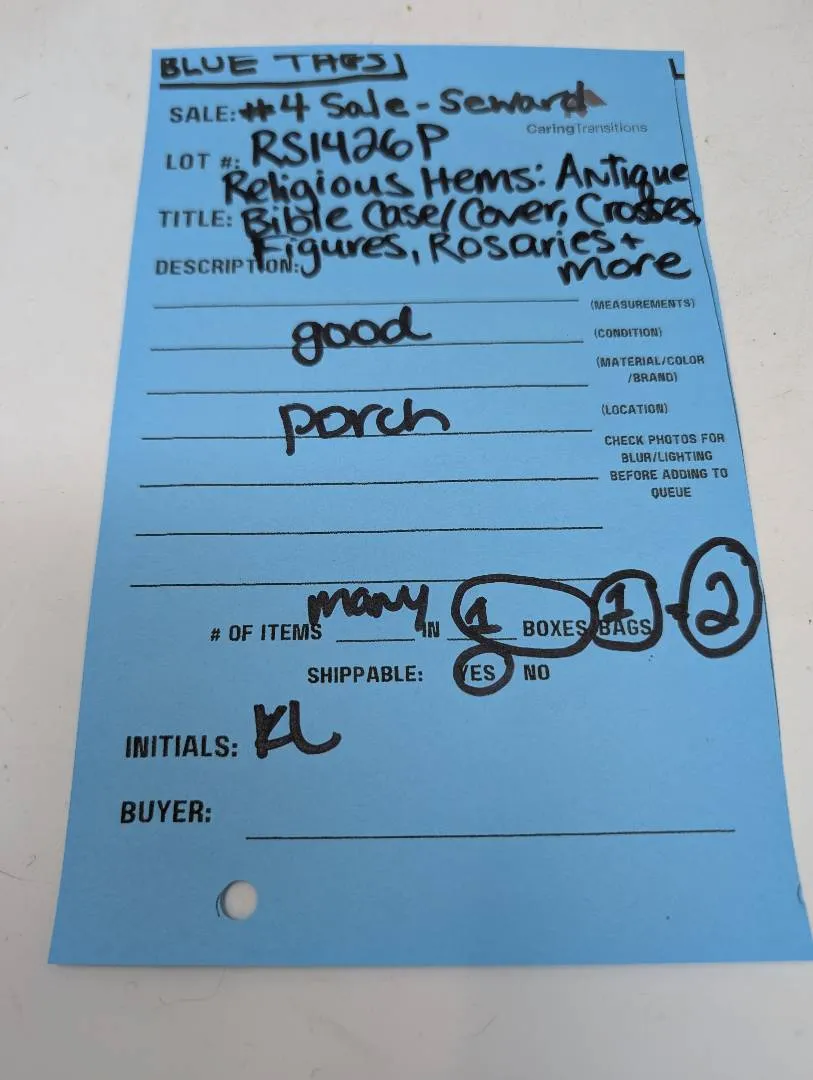 BLUE TAGS
SALE: #4 Sale - Seward
CaringTransitions
LOT #: RS1426P
Religious Items: Antique
TITLE: Bible Case/Cover, Crosses,
Figures, Rosaries +
DESCRIPTION: more
(MEASUREMENTS)
good (CONDITION)
(MATERIAL/COLOR
/BRAND)
porch (LOCATION)
CHECK PHOTOS FOR
BLUR/LIGHTING
BEFORE ADDING TO
QUEUE
# OF ITEMS many IN 1 BOXES/BAGS 1 - 2
SHIPPABLE: YES NO
INITIALS: KL
BUYER: